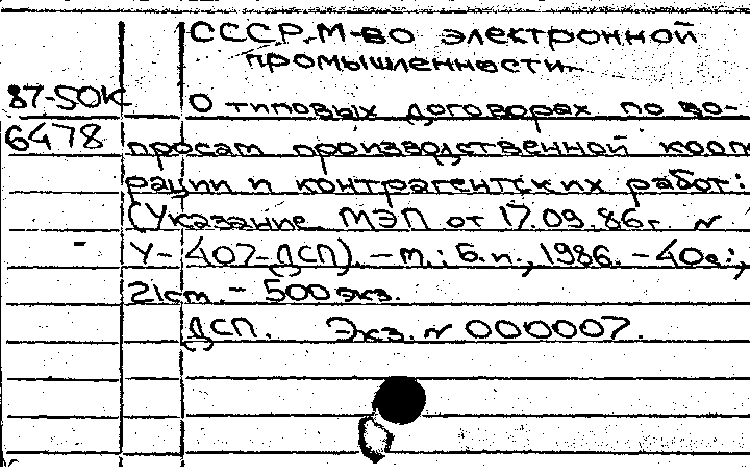 СССР. М-во электронной
промышленности.
87-50К О типовых договорах по во-
6478 просам производственной кооп
рации и контрагентских работ:
(Указание МЭП от 17.09.86г. N
У-407-ДСП). - М.: Б.и., 1986. - 40с.;
21см. - 500 экз.
ДСП. Экз. N 000007.